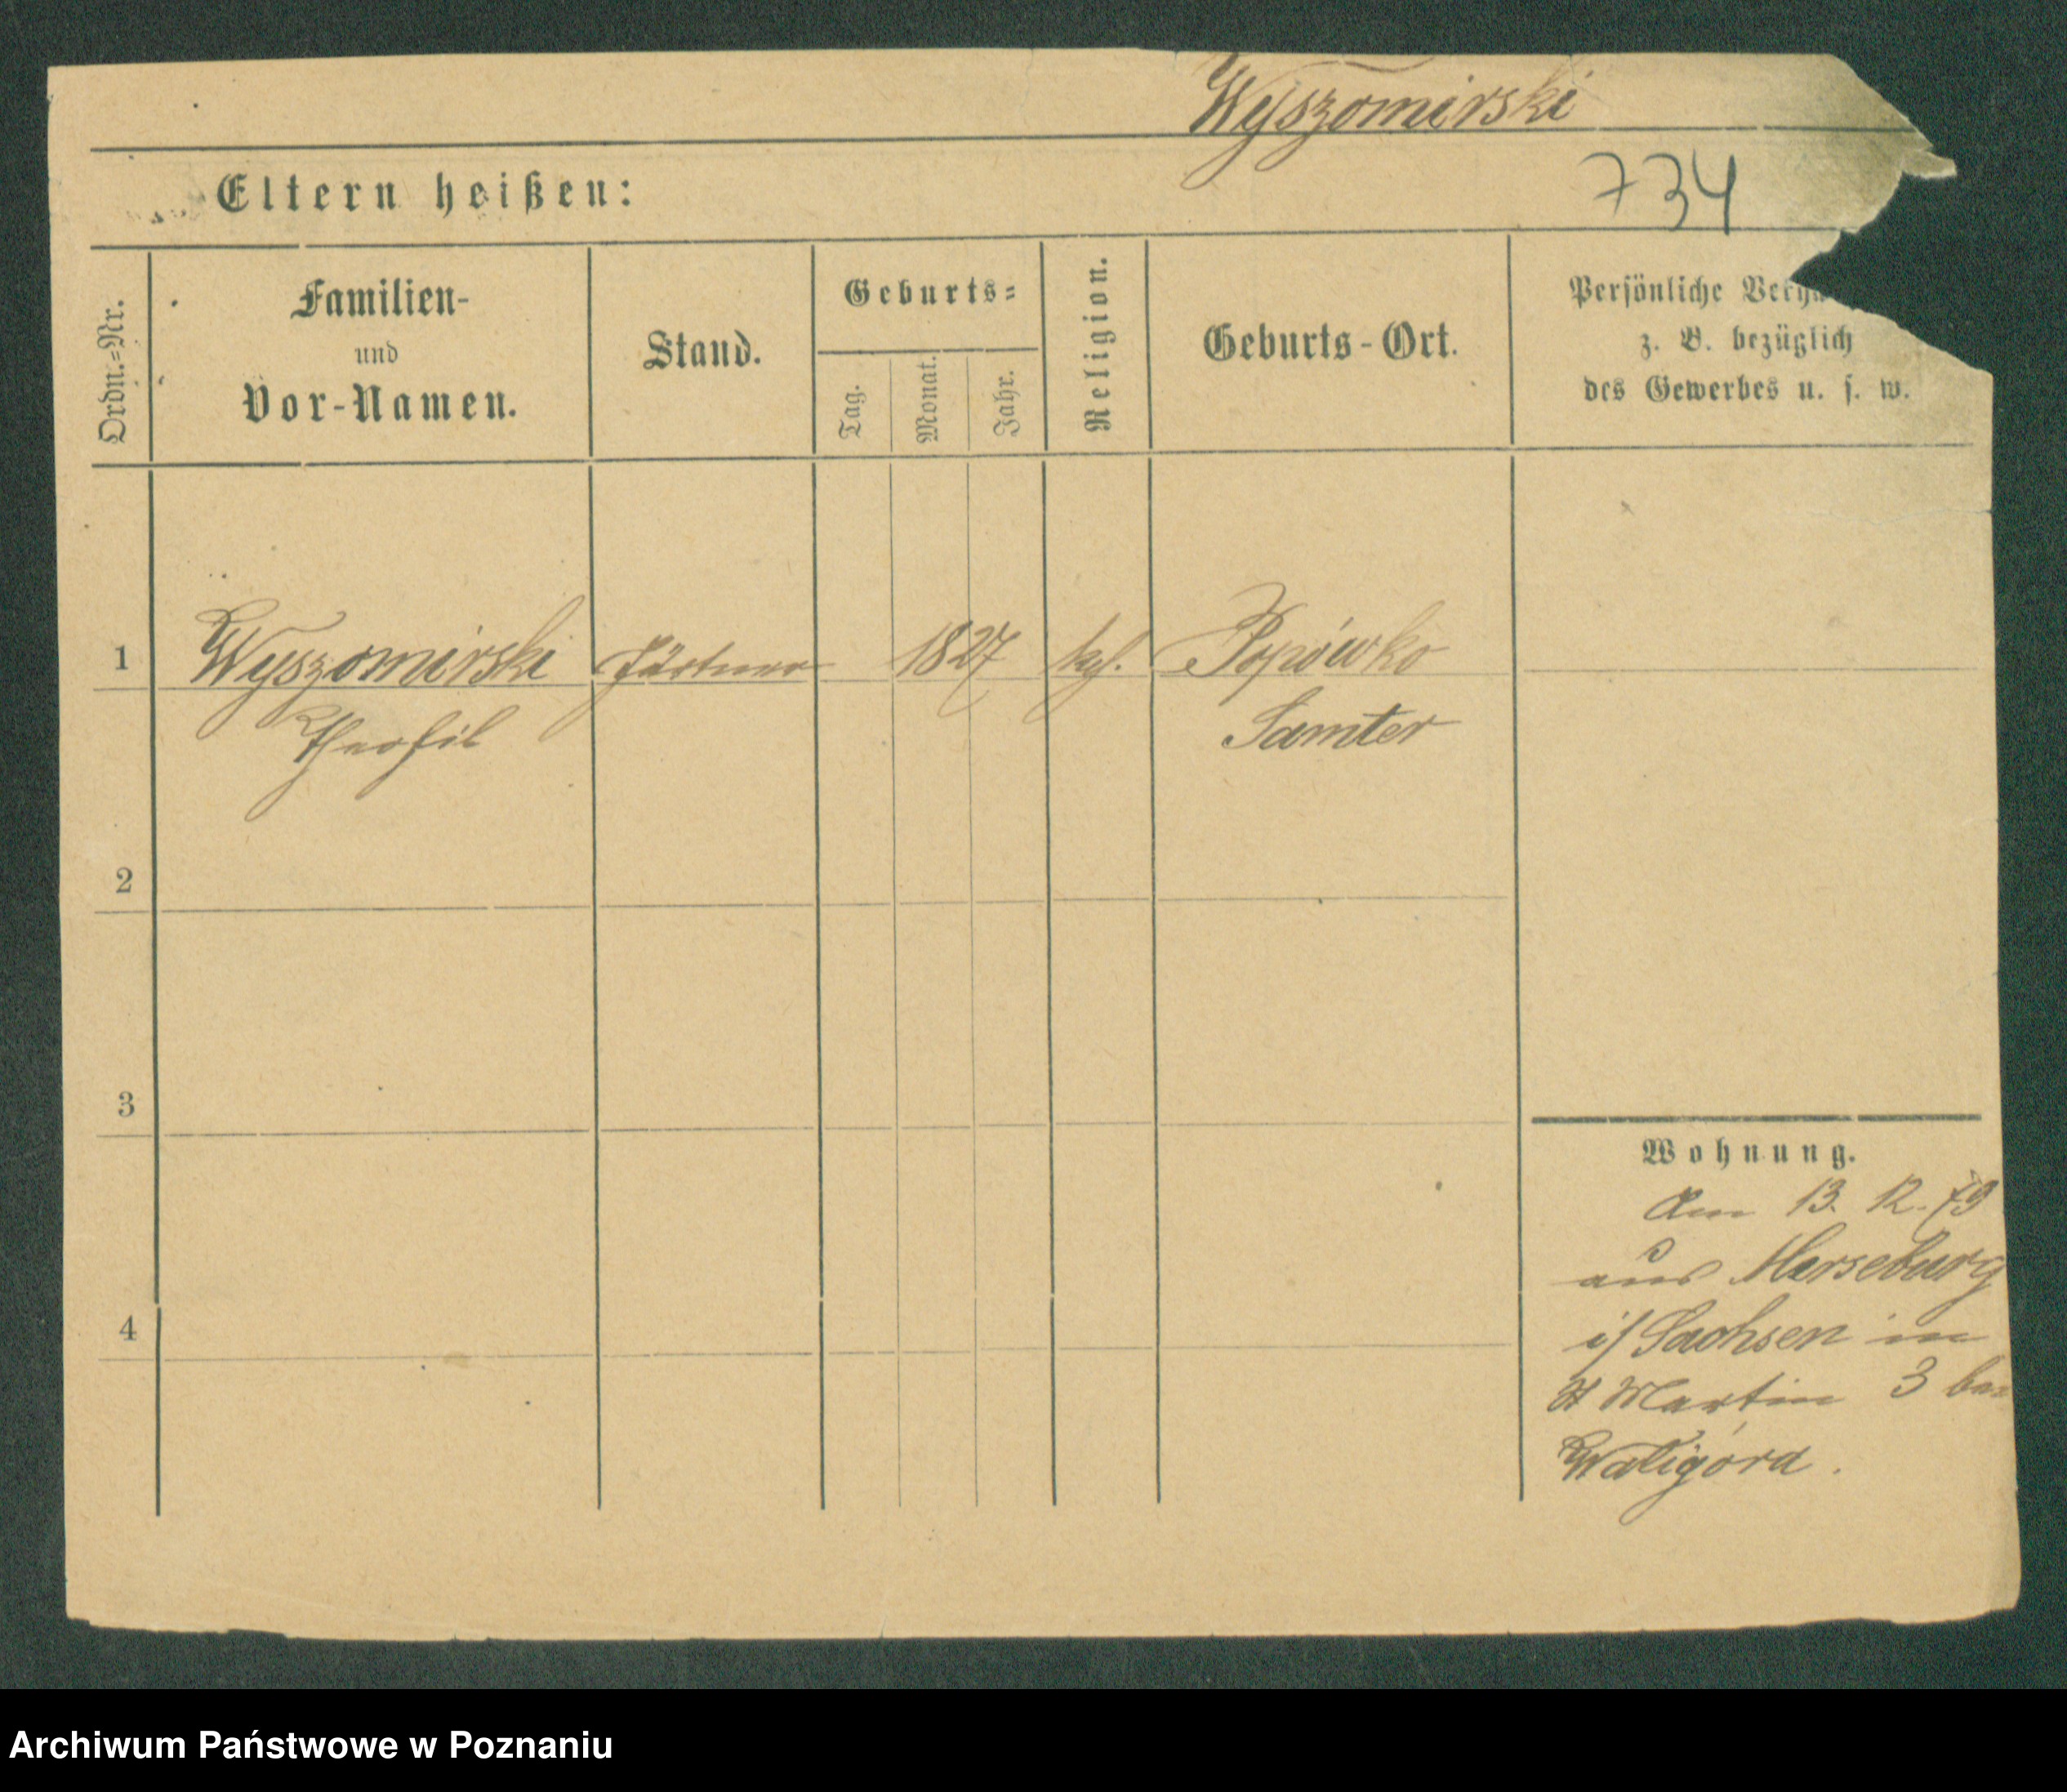 Wyszomirski
Eltern heißen:
734
Ordn.=Nr.
Familien-
und
Vor-Namen.
Stand.
Geburts=
Tag.
Monat.
Jahr.
Religion.
Geburts-Ort.
Persönliche
z. B. bezüglich
des Gewerbes u. s. w.
1
Wyszomirski
Gärtner
1827
Popówko
Theofil
Samter
2
3
4
Wohnung.
Am 13. 12. 79
aus Merseburg
i/ Sachsen in
St Martin 3
Waligóra.
Archiwum Państwowe w Poznaniu